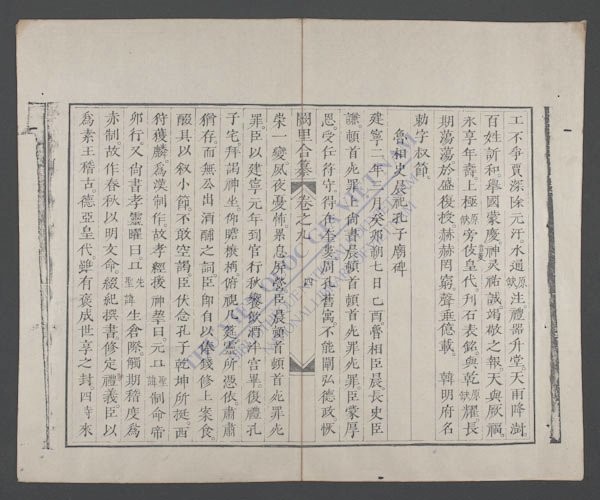 工不爭賈深除元汙水通原缺注禮器升堂天雨降澍
百姓訢和舉國蒙慶神靈祐誠竭敬之報天與厥福
永享年壽上極原缺旁伎皇代刋石表銘與乾原缺耀長
期蕩蕩於盛復授赫赫罔窮聲垂億載 韓明府名
勑字叔節
魯相史晨祀孔子廟碑
建寧二年三月癸卯朔七日己酉魯相臣晨長史臣
謙頓首死罪上尚書晨頓首頓首死罪死罪臣蒙厚
恩受任符守得在奎婁周孔舊寓不能闡弘德政恢
闕里合纂 卷之九 四
崇一變夙夜憂怖累息屏營臣晨頓首頓首死罪死
罪臣以建寧元年到官行秋饗飲酒泮宮畢復禮孔
子宅拜謁神坐仰瞻榱桷俯視几筵靈所憑依肅肅
猶存而無公出酒脯之祠臣即自以俸錢修上案食
醊具以叙小節不敢空謁臣伏念孔子乾坤所挺西
狩獲麟爲漢制作故孝經援神契曰元丘聖諱制命帝
卯行又尚書考靈曜曰丘先聖諱生倉際觸期稽度爲
赤制故作春秋以明文命綴紀撰書修定禮義臣以
爲素王稽古德亞皇代雖有褒成世享之封四時來